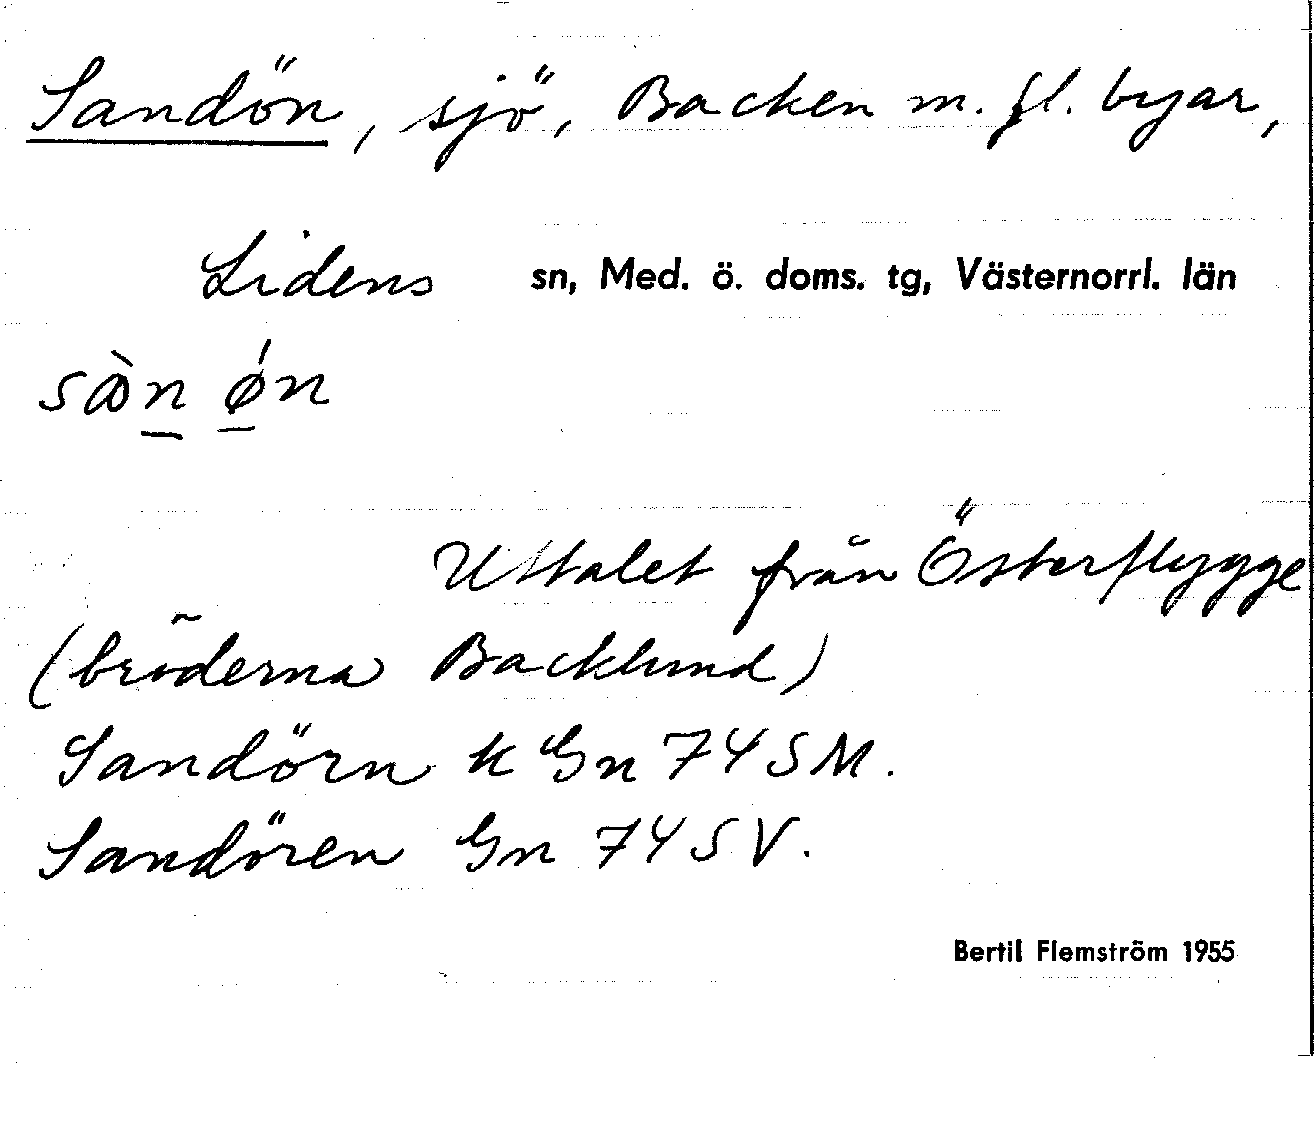 Sandön, sjö, Backen m. fl. byar,
Lidens sn, Med. ö. doms. tg, Västernorrl. län
Uttalet från Österflygge
(bröderna Backlund)
Sandörn k Gn 74 SM.
Sandören Gn 74 SV.
Bertil Flemström 1955